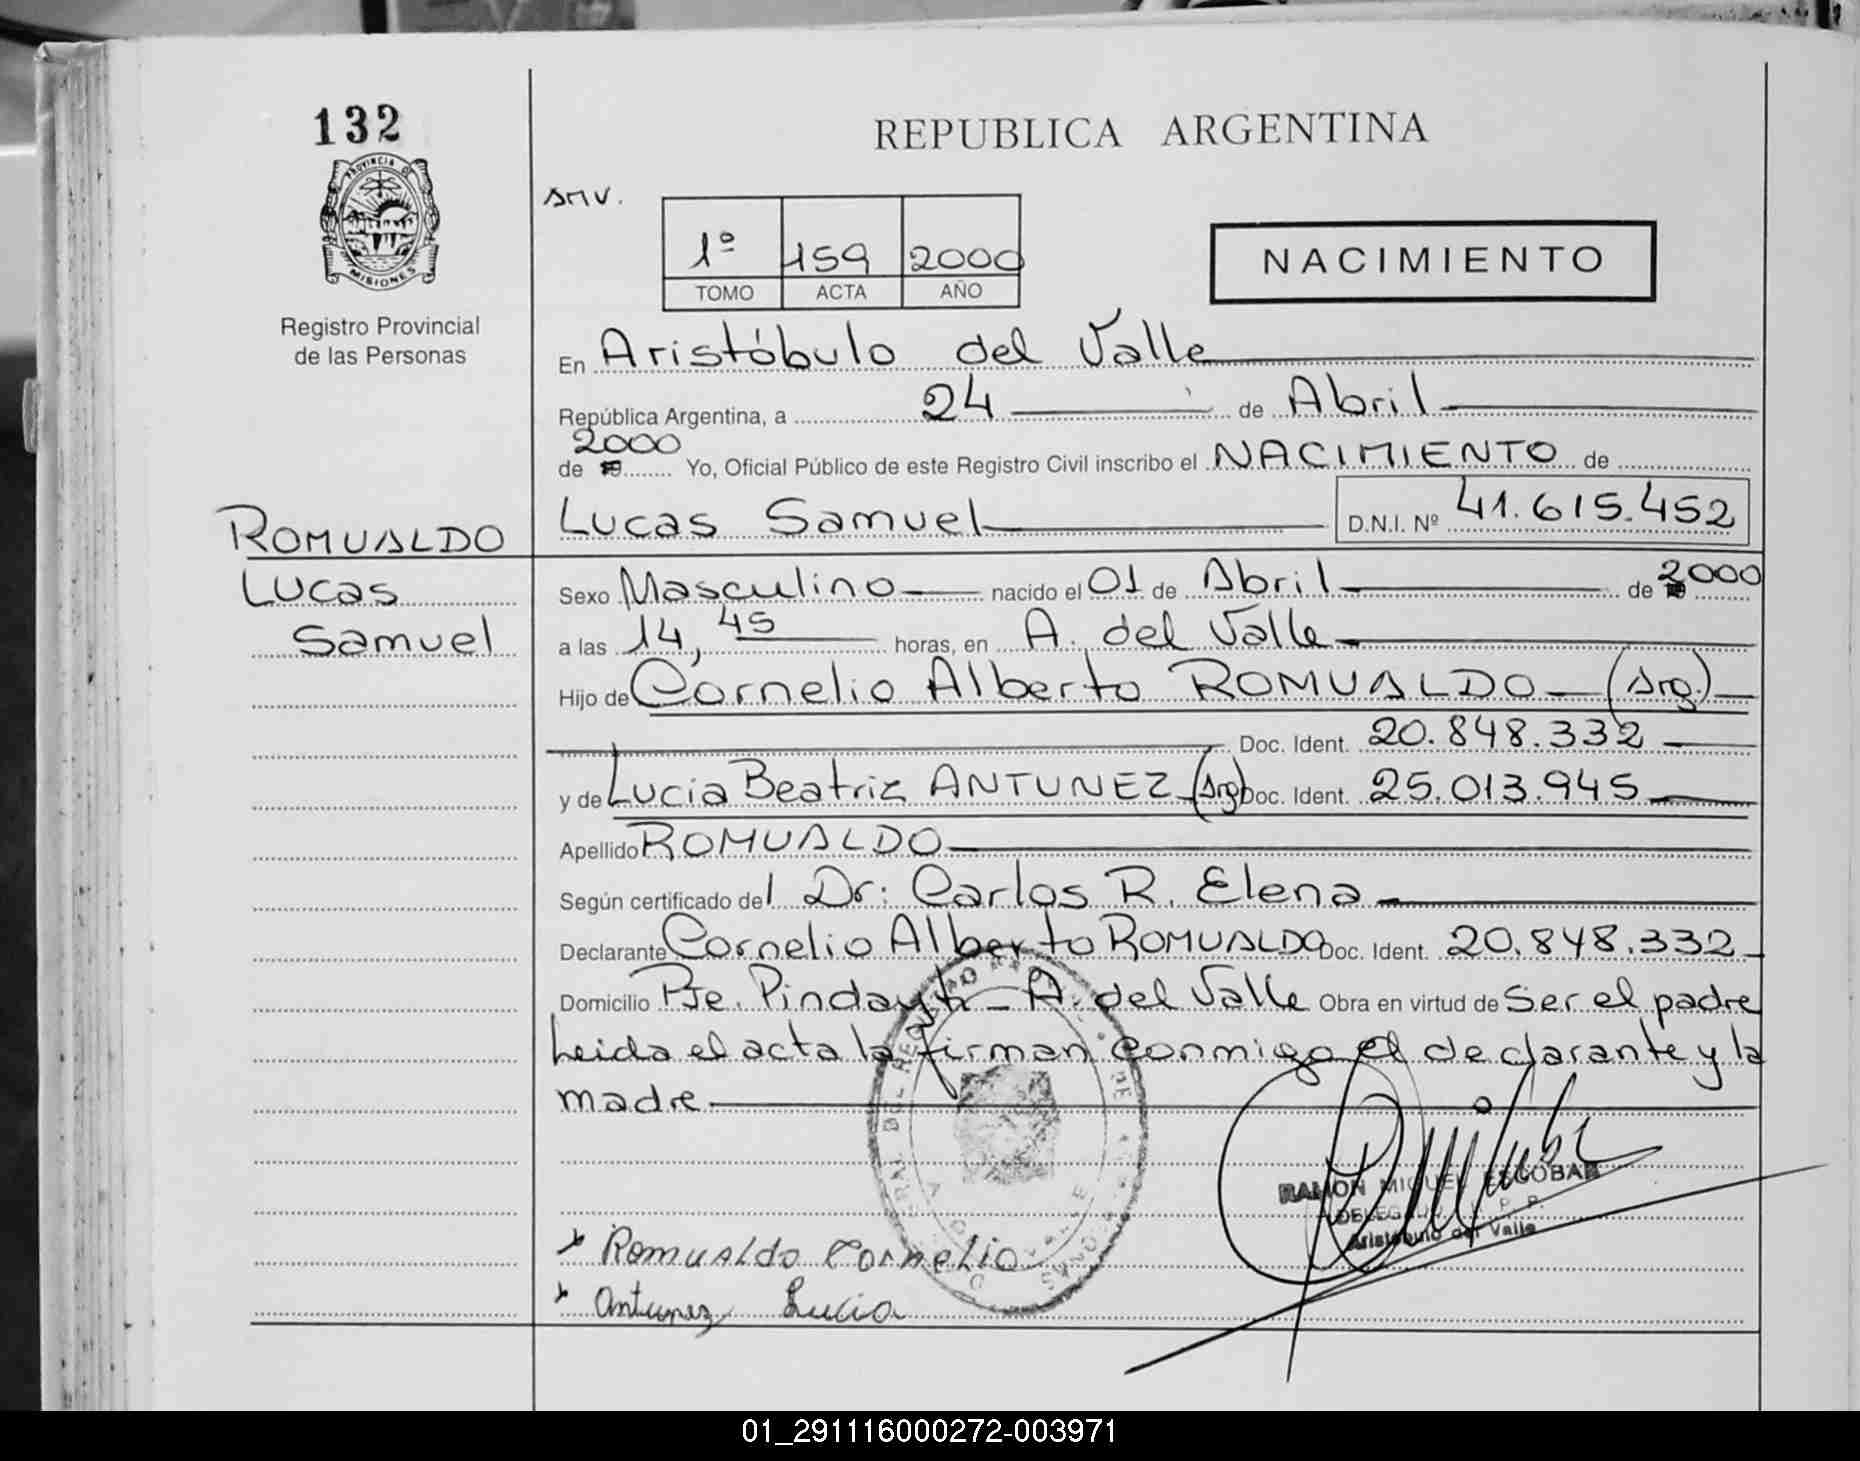 132
PROVINCIA DE
MISIONES
Registro Provincial
de las Personas
ROMUALDO
Lucas
Samuel
REPUBLICA ARGENTINA
smv.
1º 159 2000
TOMO ACTA AÑO
NACIMIENTO
En Aristóbulo del Valle
República Argentina, a 24 de Abril
2000
de 19 Yo, Oficial Público de este Registro Civil inscribo el NACIMIENTO de
Lucas Samuel D.N.I. Nº 41.615.452
Sexo Masculino nacido el 01 de Abril de 2000
a las 14,45 horas, en A. del Valle
Hijo de Cornelio Alberto ROMUALDO (Arg.)
Doc. Ident. 20.848.332
y de Lucia Beatriz ANTUNEZ (Arg) Doc. Ident. 25.013.945
Apellido ROMUALDO
Según certificado del Dr: Carlos R. Elena
Declarante Cornelio Alberto ROMUALDO Doc. Ident. 20.848.332
Domicilio Pje. Pindayti - A. del Valle Obra en virtud de Ser el padre
Leida el acta la firman conmigo el declarante y la
madre
RAMON MIGUEL ESCOBAR
Aristóbulo del Valle
Romualdo Cornelio
Antunez Lucia
01_291116000272-003971